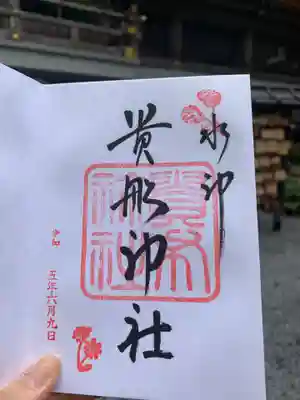 水神
貴船神社
貴船
神社
令和 五年六月九日